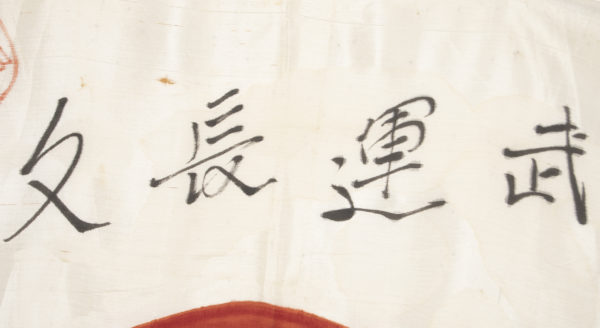 武運長久